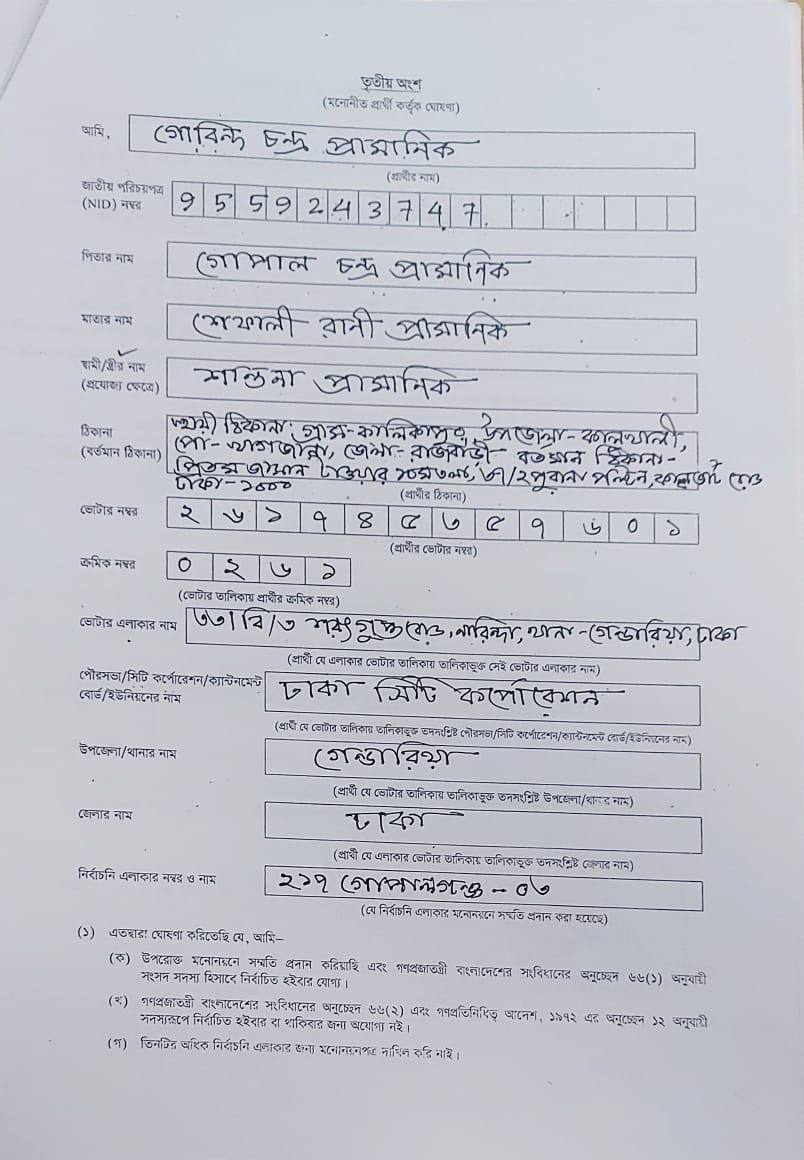 তৃতীয় অংশ
(মনোনীত প্রার্থী কর্তৃক ঘোষণা)
আমি, গোবিন্দ চন্দ্র প্রামানিক
(প্রার্থীর নাম)
জাতীয় পরিচয়পত্র
(NID) নম্বর 9 5 5 9 2 4 3 7 4 7
পিতার নাম গোপাল চন্দ্র প্রামানিক
মাতার নাম শেফালী রানী প্রামানিক
স্বামী/স্ত্রীর নাম
(প্রযোজ্য ক্ষেত্রে) শান্তনা প্রামানিক
ঠিকানা
(বর্তমান ঠিকানা)
স্থায়ী ঠিকানা: গ্রাম-কালিকাপুর, উপজেলা-কালুখালী,
পো- জেলা-রাজবাড়ী- বর্তমান ঠিকানা-
জামান টাওয়ার ১০ম তলা, ৩৭/২ পুরানা পল্টন, কালভার্ট রোড
ঢাকা-১০০০
(প্রার্থীর ঠিকানা)
ভোটার নম্বর ২ ৬ ১ ৭ ৪ ৫ ৬ ৫ ৭ ৬ ০ ১
(প্রার্থীর ভোটার নম্বর)
ক্রমিক নম্বর ০ ২ ৬ ১
(ভোটার তালিকায় প্রার্থীর ক্রমিক নম্বর)
ভোটার এলাকার নাম ৩৩/বি/৩ শরৎগুপ্ত রোড, নারিন্দা, থানা-গেন্ডারিয়া, ঢাকা
(প্রার্থী যে এলাকার ভোটার তালিকায় তালিকাভুক্ত সেই ভোটার এলাকার নাম)
পৌরসভা/সিটি কর্পোরেশন/ক্যান্টনমেন্ট
বোর্ড/ইউনিয়নের নাম ঢাকা সিটি কর্পোরেশন
(প্রার্থী যে ভোটার তালিকায় তালিকাভুক্ত তদসংশ্লিষ্ট পৌরসভা/সিটি কর্পোরেশন/ক্যান্টনমেন্ট বোর্ড/ইউনিয়নের নাম)
উপজেলা/থানার নাম গেন্ডারিয়া
(প্রার্থী যে ভোটার তালিকায় তালিকাভুক্ত তদসংশ্লিষ্ট উপজেলা/থানার নাম)
জেলার নাম ঢাকা
(প্রার্থী যে এলাকার ভোটার তালিকায় তালিকাভুক্ত তদসংশ্লিষ্ট জেলার নাম)
নির্বাচনি এলাকার নম্বর ও নাম ২১৭ গোপালগঞ্জ - ০৩
(যে নির্বাচনি এলাকার মনোনয়নে সম্মতি প্রদান করা হয়েছে)
(১) এতদ্বারা ঘোষণা করিতেছি যে, আমি-
(ক) উপরোক্ত মনোনয়নে সম্মতি প্রদান করিয়াছি এবং গণপ্রজাতন্ত্রী বাংলাদেশের সংবিধানের অনুচ্ছেদ ৬৬(১) অনুযায়ী
সংসদ সদস্য হিসাবে নির্বাচিত হইবার যোগ্য।
(খ) গণপ্রজাতন্ত্রী বাংলাদেশের সংবিধানের অনুচ্ছেদ ৬৬(২) এবং গণপ্রতিনিধিত্ব আদেশ, ১৯৭২ এর অনুচ্ছেদ ১২ অনুযায়ী
সদস্যরূপে নির্বাচিত হইবার বা থাকিবার জন্য অযোগ্য নই।
(গ) তিনটির অধিক নির্বাচনি এলাকার জন্য মনোনয়নপত্র দাখিল করি নাই।